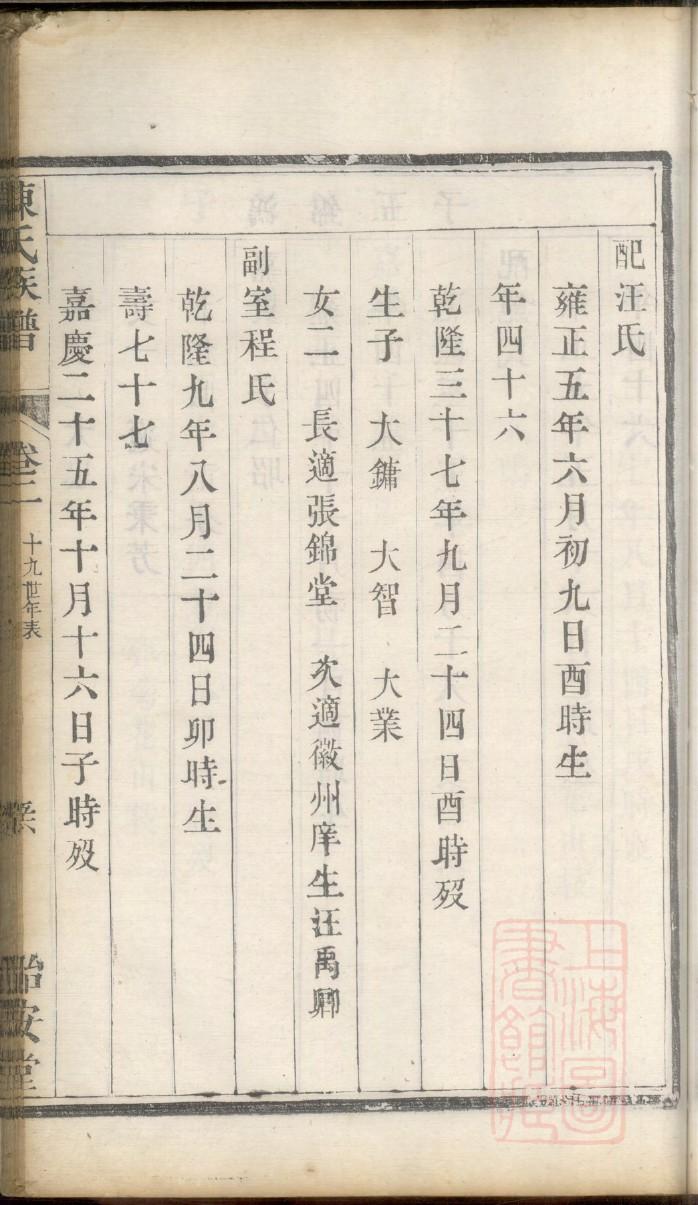 配汪氏
雍正五年六月初九日酉時生
年四十六
乾隆三十七年九月二十四日酉時歿
生子 大鏞 大智 大業
女二 長適張錦堂 次適徽州庠生汪禹卿
副室程氏
乾隆九年八月二十四日卯時生
壽七十七
嘉慶二十五年十月十六日子時歿
陳氏族譜 卷二 十九世年表 怡安堂
上海圖
書館藏